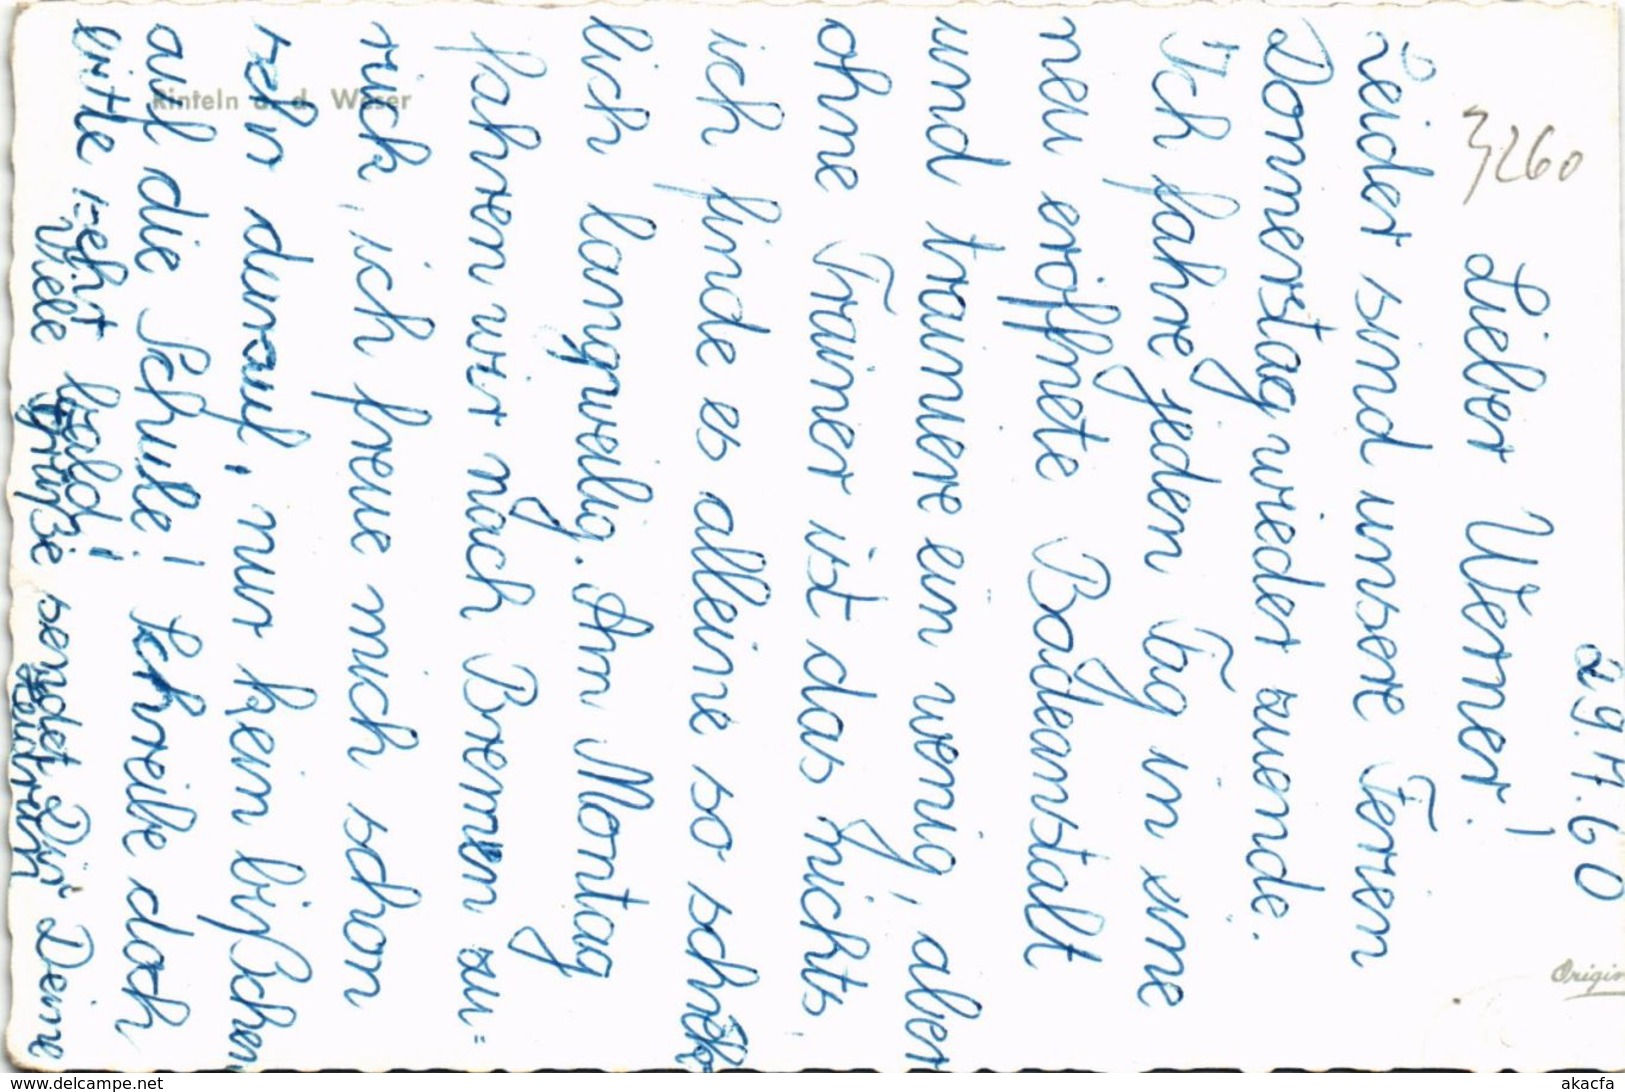 29.7.60
Lieber Werner!
Leider sind unsere Ferien
Donnerstag wieder zuende.
Ich fahre jeden Tag in eine
neu eröffnete Badeanstalt
und trainiere ein wenig, aber
ohne Trainer ist das nichts,
ich finde es alleine so schreck
lich langweilig. Am Montag
fahren wir nach Bremen zu=
rück, ich freue mich schon
sehr darauf, nur kein bißchen
auf die Schule! Schreibe doch
bitte recht bald!
Viele Grüße sendet Dir Deine
3260
Rinteln a. d. Weser
Origin
www.delcampe.net
akacfa